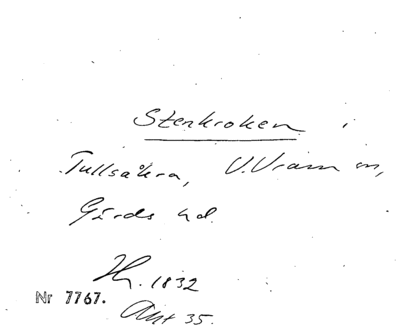 Stenkroken i
Tullsåkra, V. Vram sn,
Gärds hd.
Th. 1832
Nr 7767.
Ant 35.